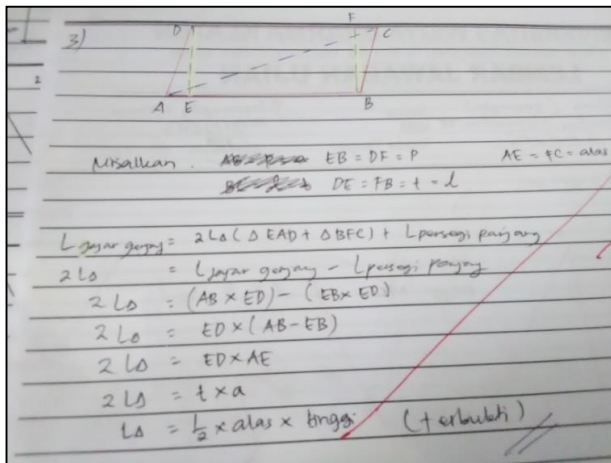 3)
D F C
A E B
Misalkan. EB = DF = P AE = FC = alas
DE = FB = t = l
L jajar genjang = 2L△ (△ EAD + △ BFC) + L persegi panjang
2L△ = L jajar genjang - L persegi panjang
2L△ = (AB × ED) - (EB × ED)
2L△ = ED × (AB - EB)
2L△ = ED × AE
2L△ = t × a
L△ = 1/2 × alas × tinggi (terbukti)